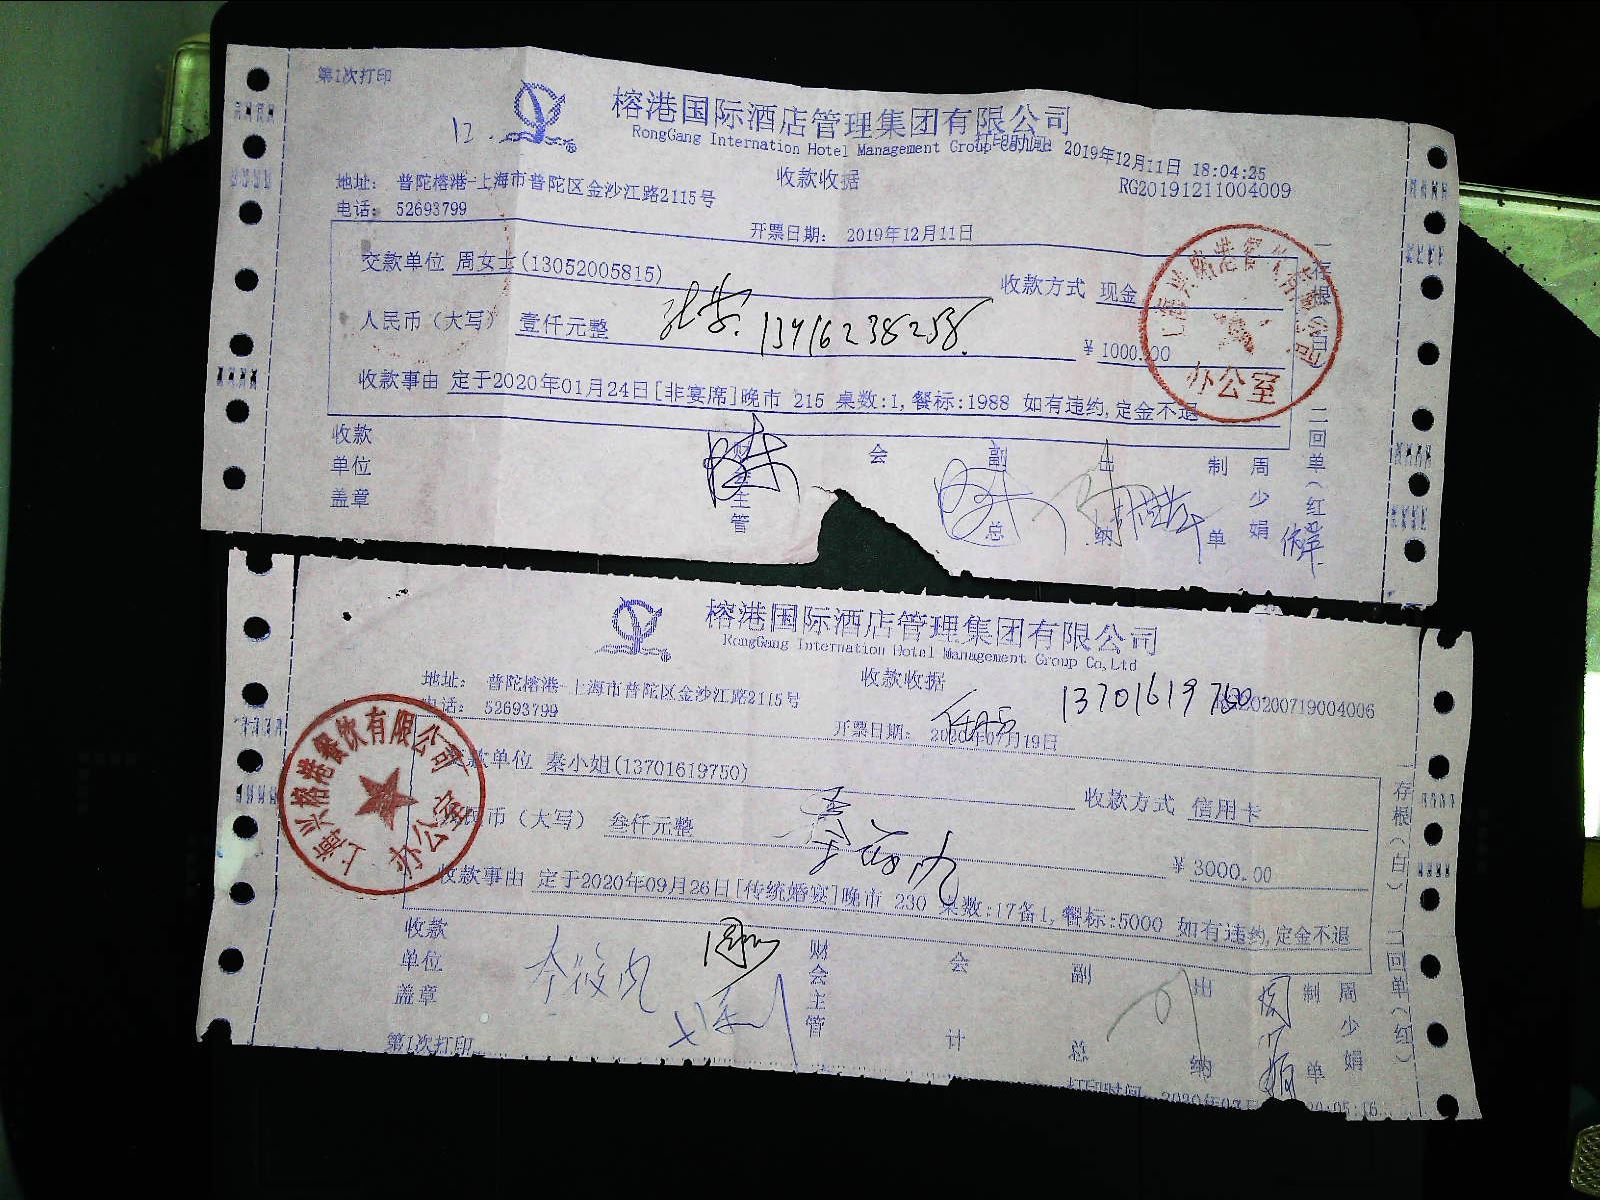 第1次打印
12.
榕港国际酒店管理集团有限公司
RongGang Internation Hotel Management Group Co,Ltd
打印时间: 2019年12月11日 18:04:25
收款收据
RG20191211004009
地址: 普陀榕港-上海市普陀区金沙江路2115号
电话: 52693799
开票日期: 2019年12月11日
交款单位 周女士(13052005815)
收款方式 现金
人民币（大写） 壹仟元整
13916238258.
¥ 1000.00
收款事由 定于2020年01月24日[非宴席]晚市 215 桌数:1,餐标:1988 如有违约,定金不退
上海兴榕港餐饮有限公司
办公室
收款单位盖章
财会主管
会
副总
出纳
制单
周少娟
存根（白） 二回单（红
榕港国际酒店管理集团有限公司
RongGang Internation Hotel Management Group Co,Ltd
收款收据
13701619750
20200719004006
地址: 普陀榕港-上海市普陀区金沙江路2115号
电话: 52693799
开票日期: 2020年07月19日
交款单位 秦小姐(13701619750)
收款方式 信用卡
人民币（大写） 叁仟元整
¥ 3000.00
收款事由 定于2020年09月26日[传统婚宴]晚市 230 桌数:17备1,餐标:5000 如有违约,定金不退
上海兴榕港餐饮有限公司
办公室
收款单位盖章
财会主管
会计
副总
出纳
制单
周少娟
存根（白） 二回单（红）
第1次打印
打印时间: 2020年07月
20:05:16